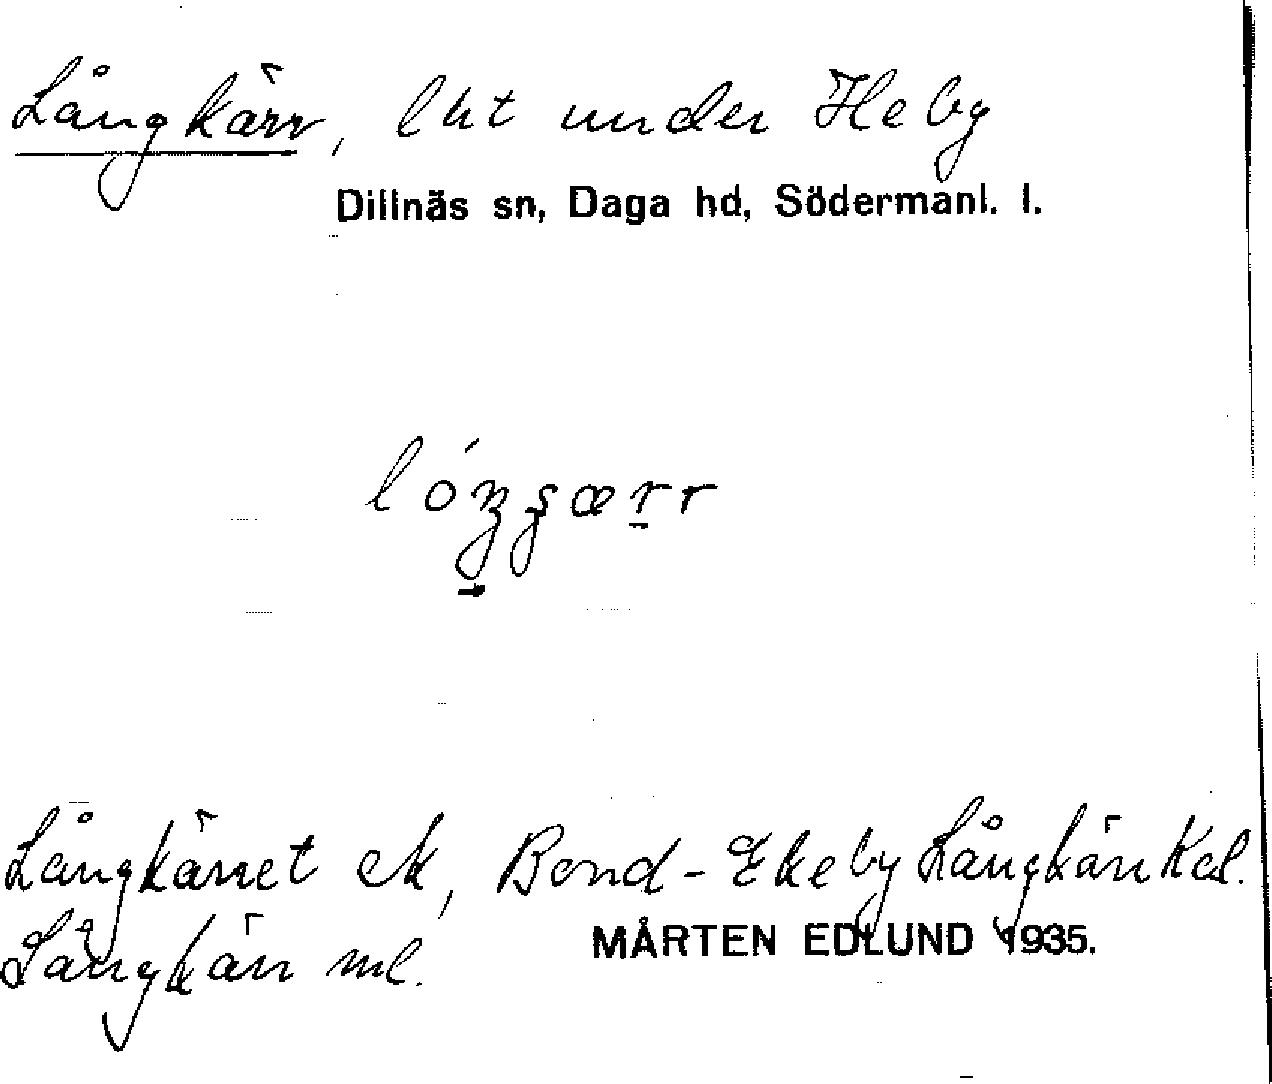 Långkärr, lht under Heby
Dillnäs sn, Daga hd, Södermanl. l.
Långkärret ek, Bond-Ekeby Långkärr Kcl.
Långkärr ml.
MÅRTEN EDLUND 1935.